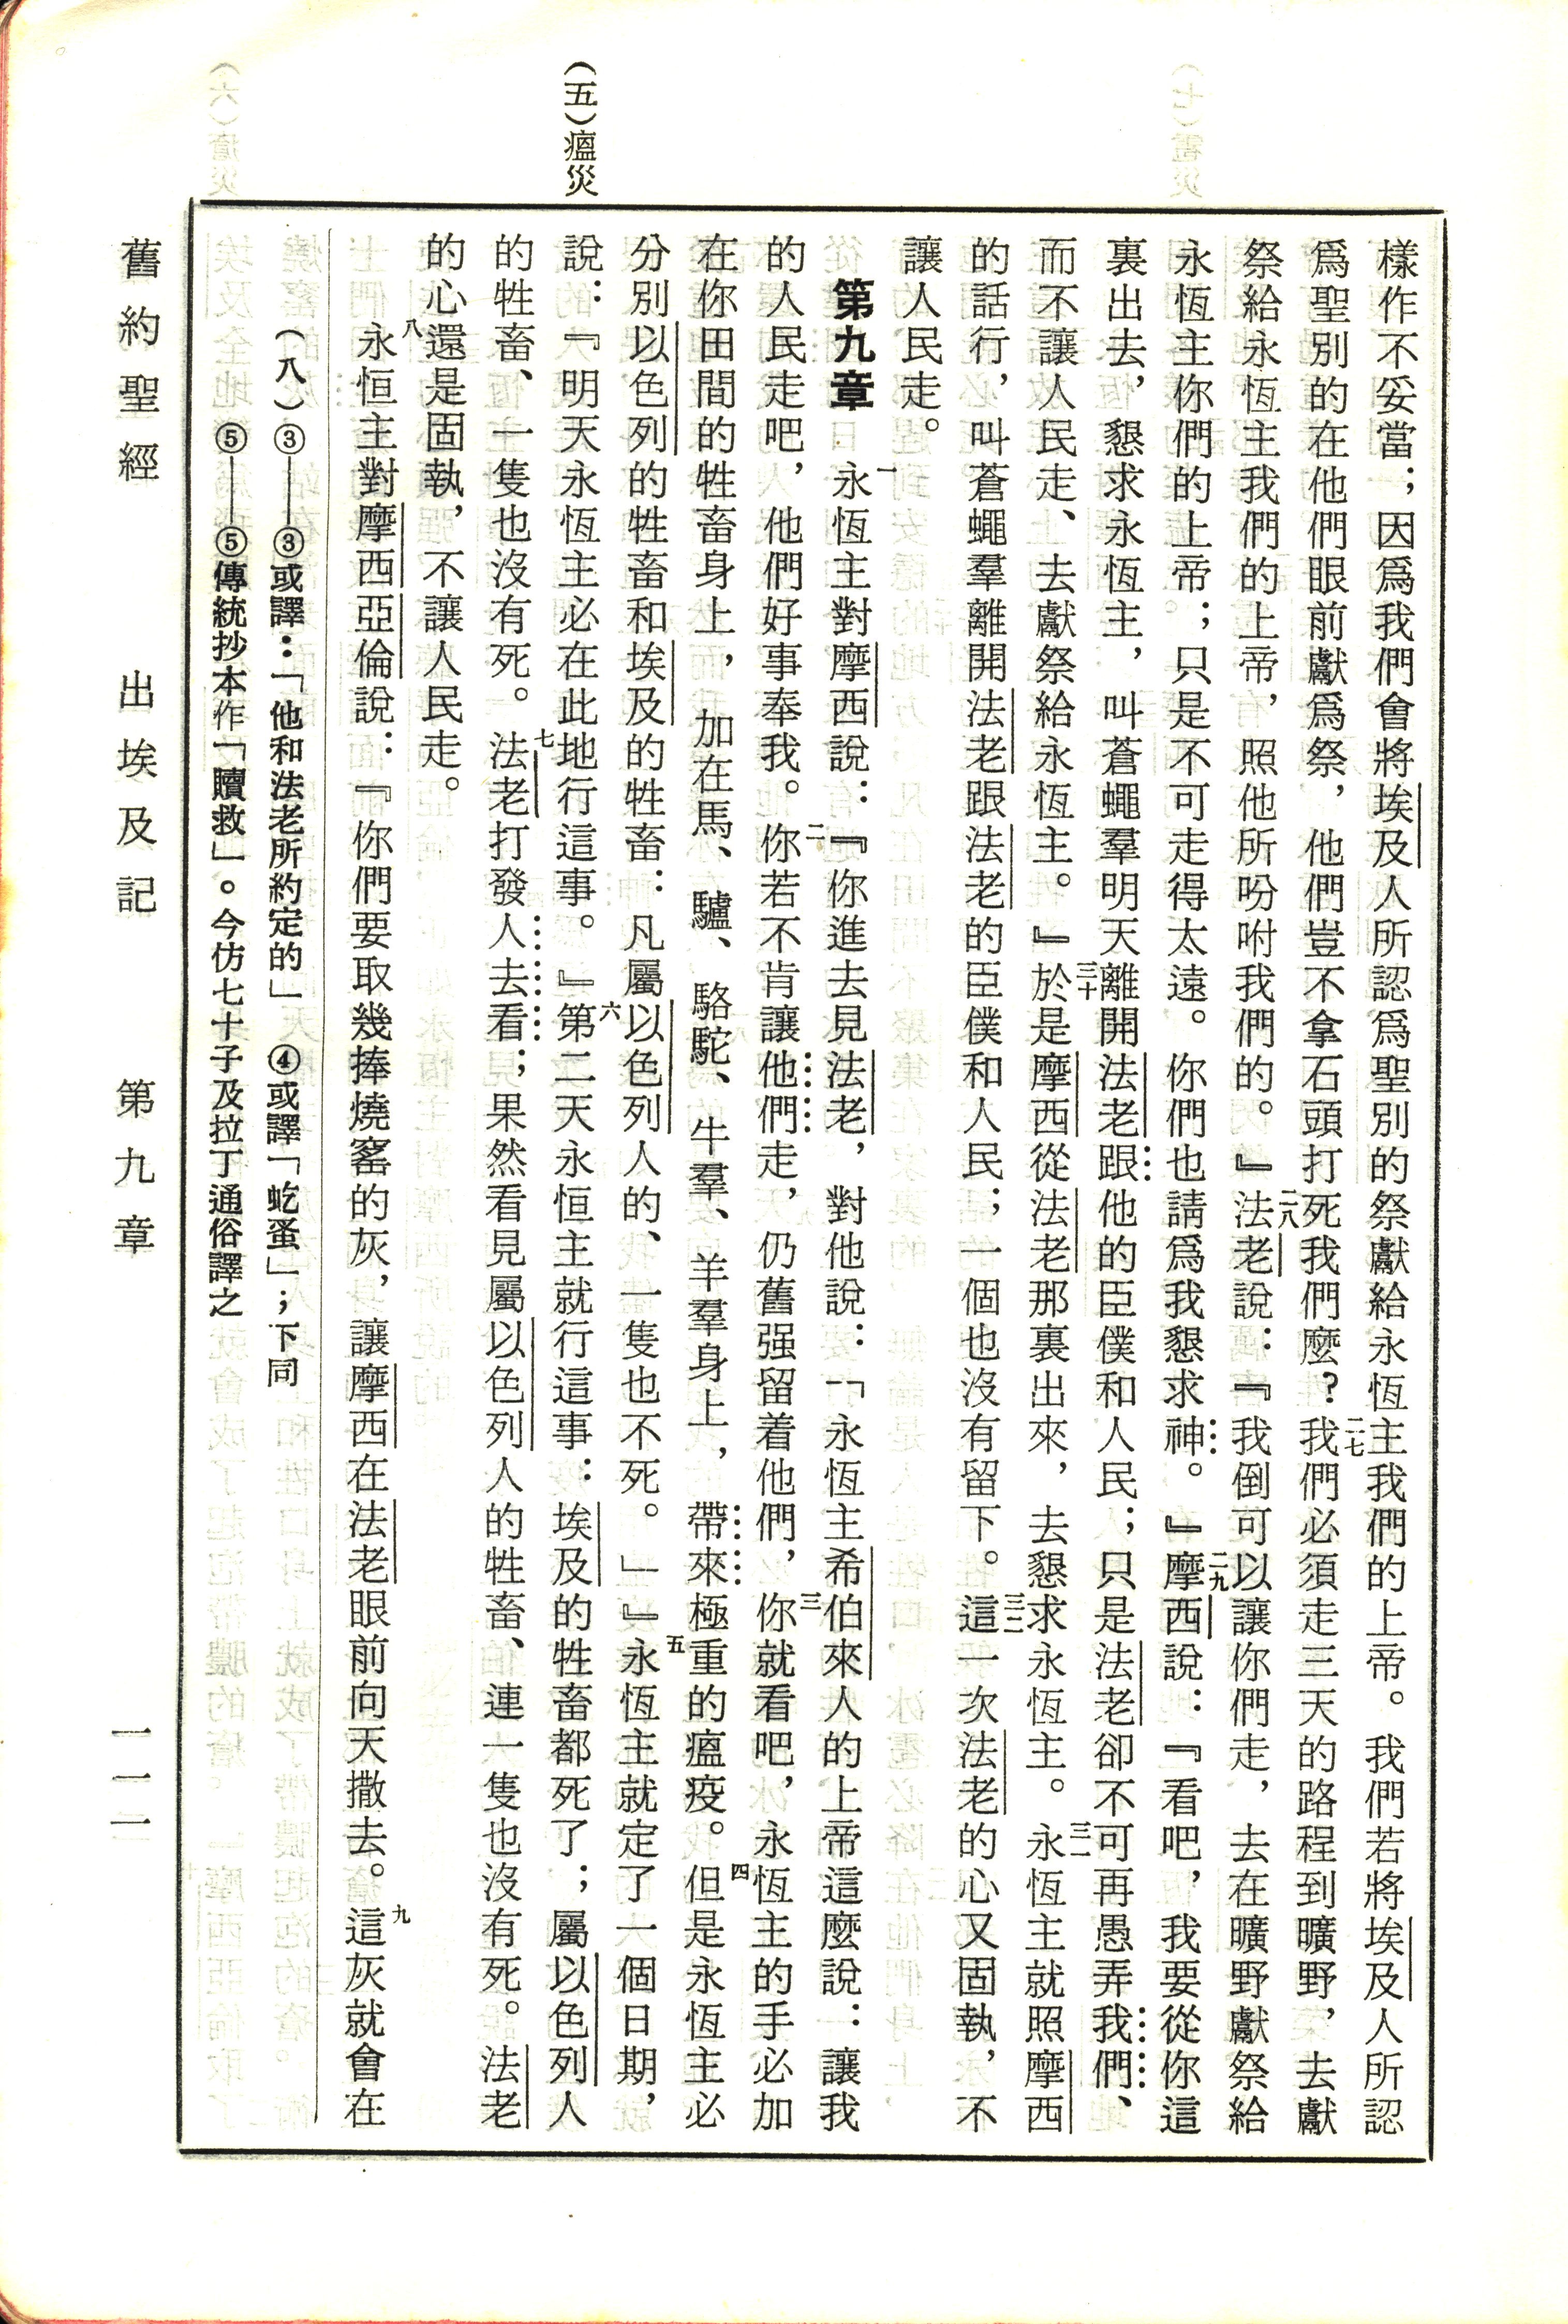 （五）瘟災
樣作不妥當；因爲我們會將埃及人所認爲聖別的祭獻給永恆主我們的上帝。我們若將埃及人所認
爲聖別的在他們眼前獻爲祭，他們豈不拿石頭打死我們麼？二七我們必須走三天的路程到曠野，去獻
祭給永恆主我們的上帝，照他所吩咐我們的。』二八法老說：『我倒可以讓你們走，去在曠野獻祭給
永恆主你們的上帝；只是不可走得太遠。你們也請爲我懇求神。』二九摩西說：『看吧，我要從你這
裏出去，懇求永恆主，叫蒼蠅羣明天離開法老跟他的臣僕和人民；只是法老卻不可再愚弄我們、
而不讓人民走、去獻祭給永恆主。』三十於是摩西從法老那裏出來，去懇求永恆主。三一永恆主就照摩西
的話行，叫蒼蠅羣離開法老跟法老的臣僕和人民；一個也沒有留下。三二這一次法老的心又固執，不
讓人民走。
第九章 一永恆主對摩西說：『你進去見法老，對他說：「永恆主希伯來人的上帝這麼說：讓我
的人民走吧，他們好事奉我。二你若不肯讓他們走，仍舊强留着他們，三你就看吧，永恆主的手必加
在你田間的牲畜身上，加在馬、驢、駱駝、牛羣、羊羣身上，帶來極重的瘟疫。四但是永恆主必
分別以色列的牲畜和埃及的牲畜：凡屬以色列人的、一隻也不死。」』五永恆主就定了一個日期，
說：『明天永恆主必在此地行這事。』六第二天永恆主就行這事：埃及的牲畜都死了；屬以色列人
的牲畜、一隻也沒有死。七法老打發人去看；果然看見屬以色列人的牲畜、連一隻也沒有死。法老
的心還是固執，不讓人民走。
八永恆主對摩西亞倫說：『你們要取幾捧燒窰的灰，讓摩西在法老眼前向天撒去。九這灰就會在
（八）③——③或譯：「他和法老所約定的」 ④或譯「虼蚤」；下同
⑤——⑤傳統抄本作「贖救」。今仿七十子及拉丁通俗譯之
舊約聖經 出埃及記 第九章 一一二